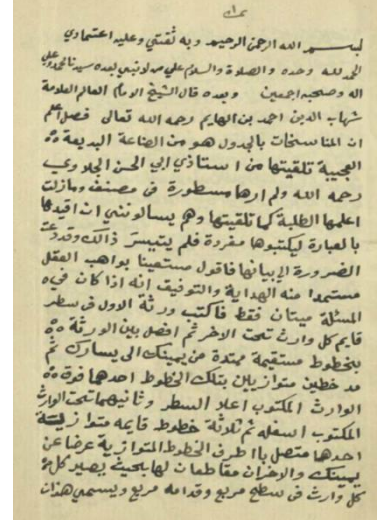 بسم الله الرحمن الرحيم وبه ثقتي وعليه اعتمادي
الحمد لله وحده والصلاة والسلام علي من لا نبي بعده سيدنا محمد وعلي
اله وصحبه اجمعين وبعده قال الشيخ الامام العالم العلامة
شهاب الدين احمد بن الهايم رحمه الله تعالى فصل اعلم
ان المناسخات بالجدول هو من الصناعة البديعة
العجيبة تلقيتها من استاذي ابي الحسن الجلاوي
رحمه الله ولم ارها مسطورة في مصنف ومازلت
اعلمها الطلبة كما تلقيتها وهم يسالونني ان اقيدها
بالعبارة ليكتبوها مفردة فلم يتيسر ذالك وقد دعت
الضرورة الي بيانها فاقول مستعينا بواهب العقل
مستمدا منه الهداية والتوفيق انه اذا كان في
المسئلة ميتان فقط فاكتب ورثة الاول في سطر
قايم كل وارث تحت الاخر ثم افصل بين الورثة
بخطوط مستقيمة ممتدة من يمينك الي يسارك ثم
مد خطين متوازيين بتلك الخطوط احدها فوق
الوارث المكتوب اعلا السطر وثانيهما تحت الوارث
المكتوب اسفله ثم ثلاثة خطوط قايمه متوازية
احدها متصل باطرف الخطوط المتوازية عرضا عن
يمينك والاخران مقاطعان لها بحيث يصير كل
كل وارث في سطح مربع وقدامه مربع ويسمي هذان